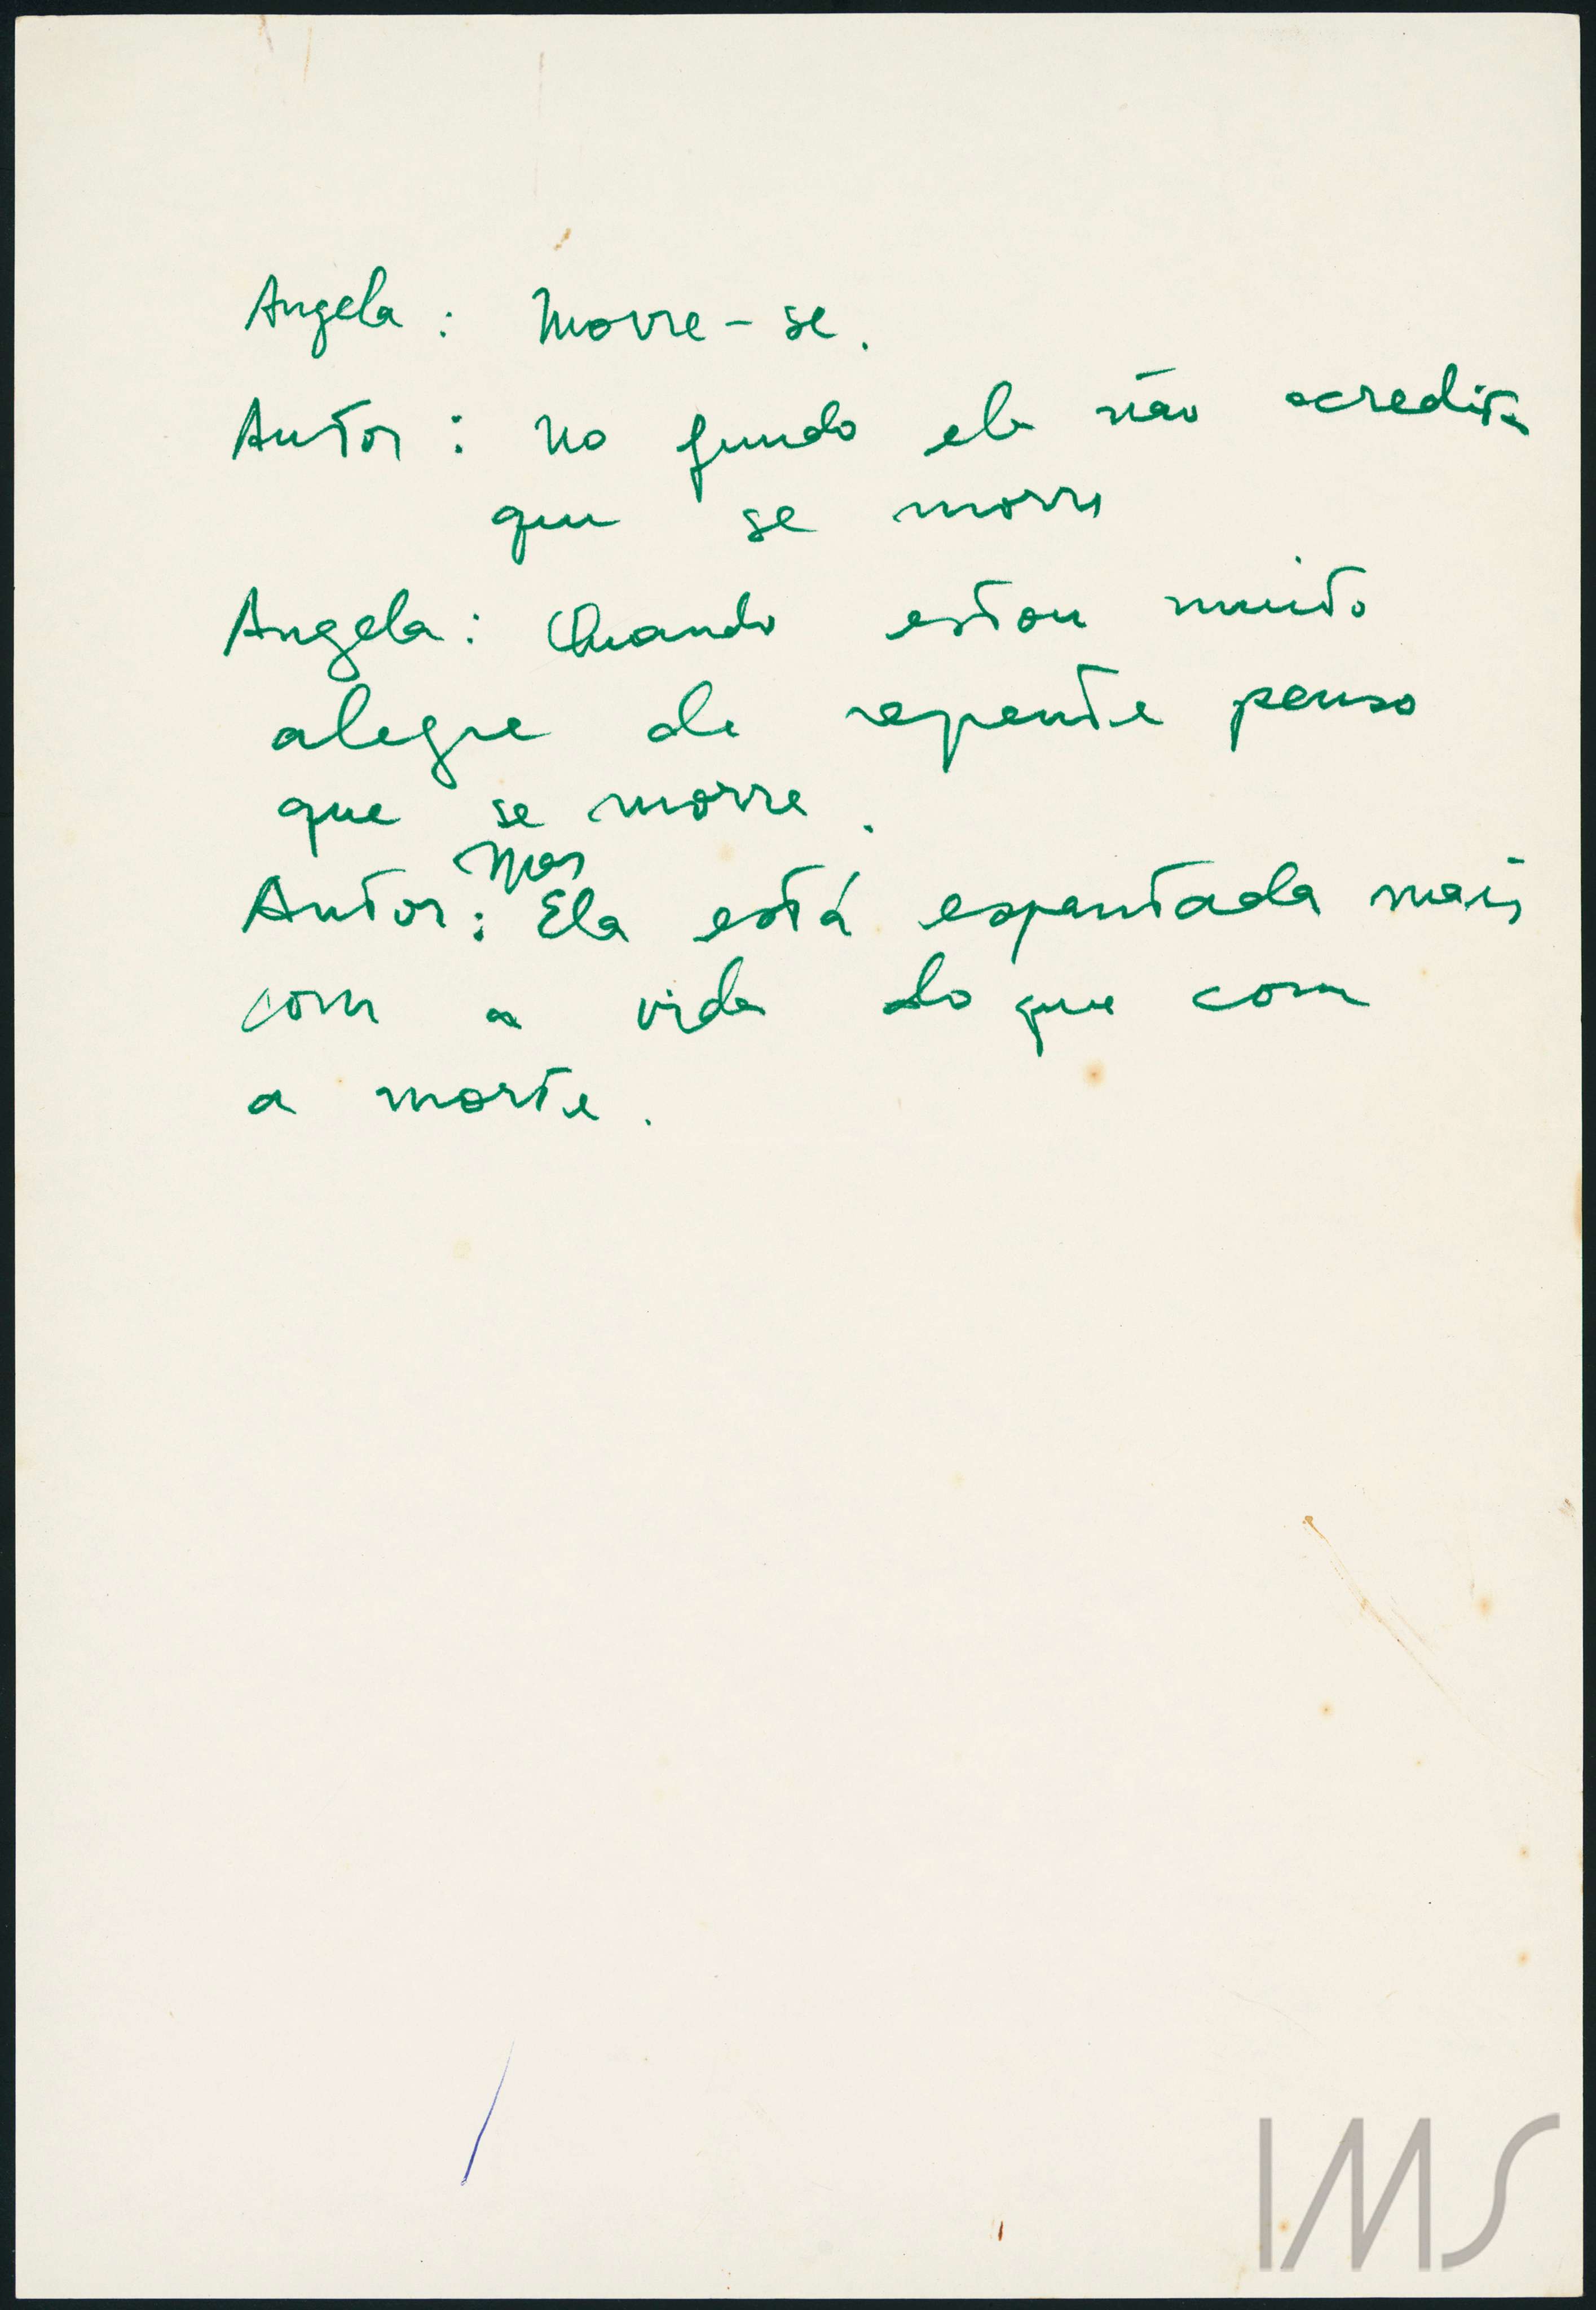 Angela : Morre-se.
Autor : No fundo ela não acredita
que se morre
Angela : Quando estou muito
alegre de repente penso
que se morre.
Mas
Autor : Ela está espantada mais
com a vida do que com
a morte.
IMS